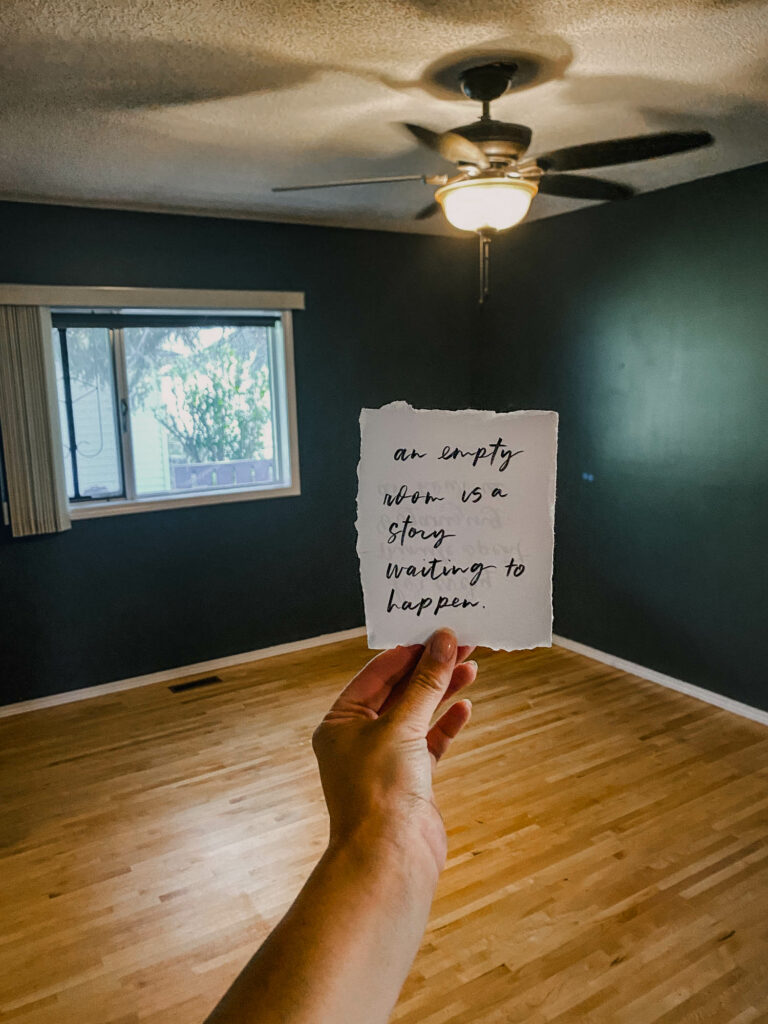 an empty
room is a
story
waiting to
happen.